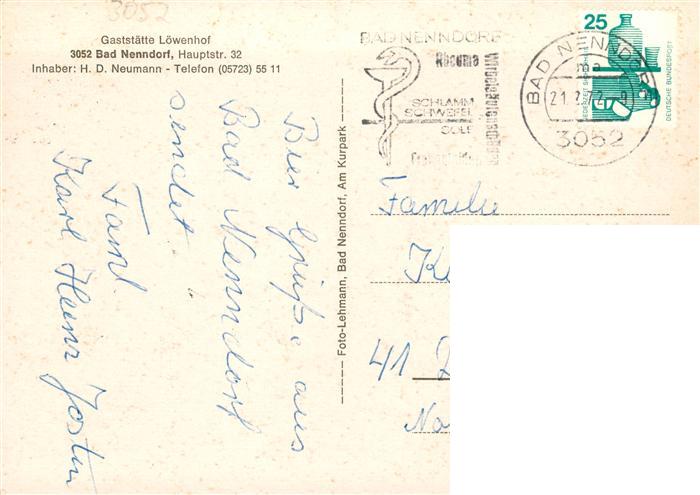 3052
Gaststätte Löwenhof
3052 Bad Nenndorf, Hauptstr. 32
Inhaber: H. D. Neumann - Telefon (05723) 55 11
Grüße aus
Bad Nenndorf
sendet
Faml.
Karl Heinz Josten
Foto-Lehmann, Bad Nenndorf, Am Kurpark
BAD NENNDORF
Rheuma
SCHLAMM
SCHWEFEL
SOLE
BAD NENNDORF
21. 7.72
3052
25
JEDERZEIT SICHERHEIT
DEUTSCHE BUNDESPOST
Familie
41